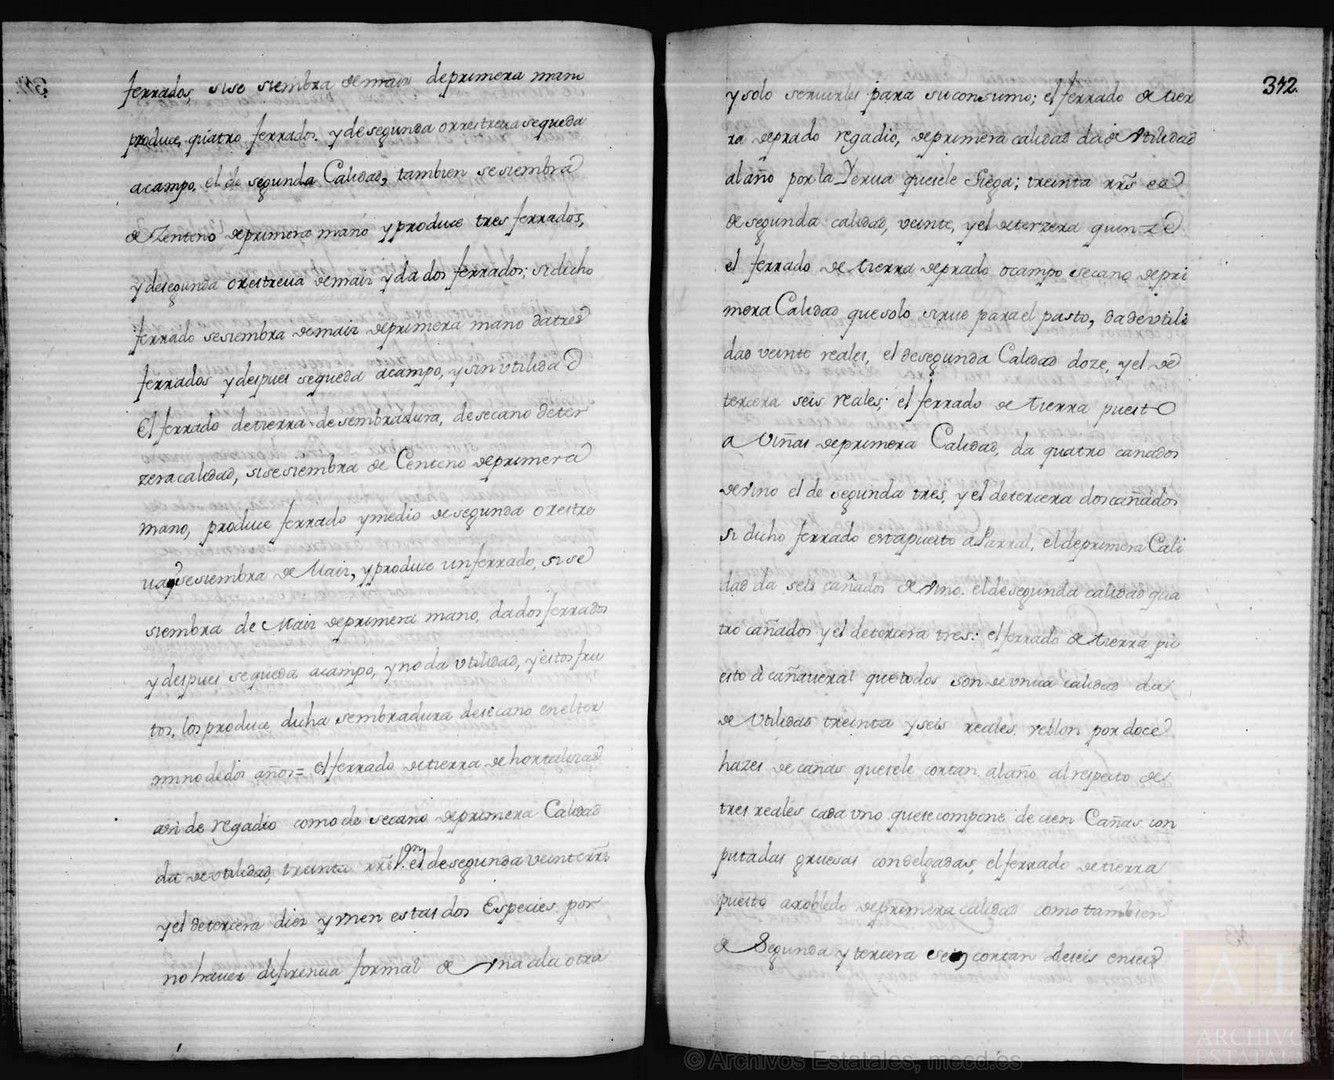 ferrados, si se siembra de maiz de primera mano
produce, quatro ferrados. y de segunda o rrestreva se queda
acampo, el de segunda Calidad, tambien se siembra
de Zenteno de primera mano y produce tres ferrados,
y de segunda o restreva de maiz y da dos ferrados; si dicho
ferrado se siembra de maiz de primera mano da tres
ferrados y despues se queda acampo, y sin vtilidad
El ferrado de tierra de sembradura, de secano de ter
zera calidad, si se siembra de Centeno de primera
mano, produce ferrado y medio de segunda o restre
va, se siembra de Maiz, y produce un ferrado, si se
siembra de Maiz de primera mano, da dos ferrados
y despues se queda acampo, y no da vtilidad, y estos fru
tos, los produce dicha sembradura de secano en el ter
mino de dos años = el ferrado de tierra de hortaliza
asi de regadio como de secano de primera Calidad
da de vtilidad, treinta rrs el de segunda veinte rrs
y el de tercera diez y en estas dos Especies por
no haver diferencia formal de vna a la otra
342.
y solo servirles para su consumo; el ferrado de tier
ra de prado regadio, de primera calidad da de vtilidad
al año por la Yerva que se le Siega; treinta rrs
de segunda calidad, veinte, y el de terzera quinze
el ferrado de tierra de prado, o campo secano de pri
mera Calidad que solo sirve para el pasto, da de vtili
dad veinte reales, el de segunda Calidad doze, y el de
tercera seis reales; el ferrado de tierra puesto
a Viñas de primera Calidad, da quatro cañados
de vino el de segunda tres, y el de tercera dos cañados
si dicho ferrado esta puesto a Parral, el de primera Cali
dad da seis cañados de vino. el de segunda calidad qua
tro cañados y el de tercera tres: el ferrado de tierra pu
esto a cañaveral que todos son de vnica calidad da
de Vtilidad treinta y seis reales vellon por doce
hazes de cañas que se le cortan al año al respecto de
tres reales cada vno que se compone de cien Cañas con
putadas gruesas con delgadas, el ferrado de tierra
puesto a robledo de primera calidad como tambien
de Segunda y tercera se cortan de seis en seis
© Archivos Estatales, mecd.es
ARCHIVOS
ESTATALES